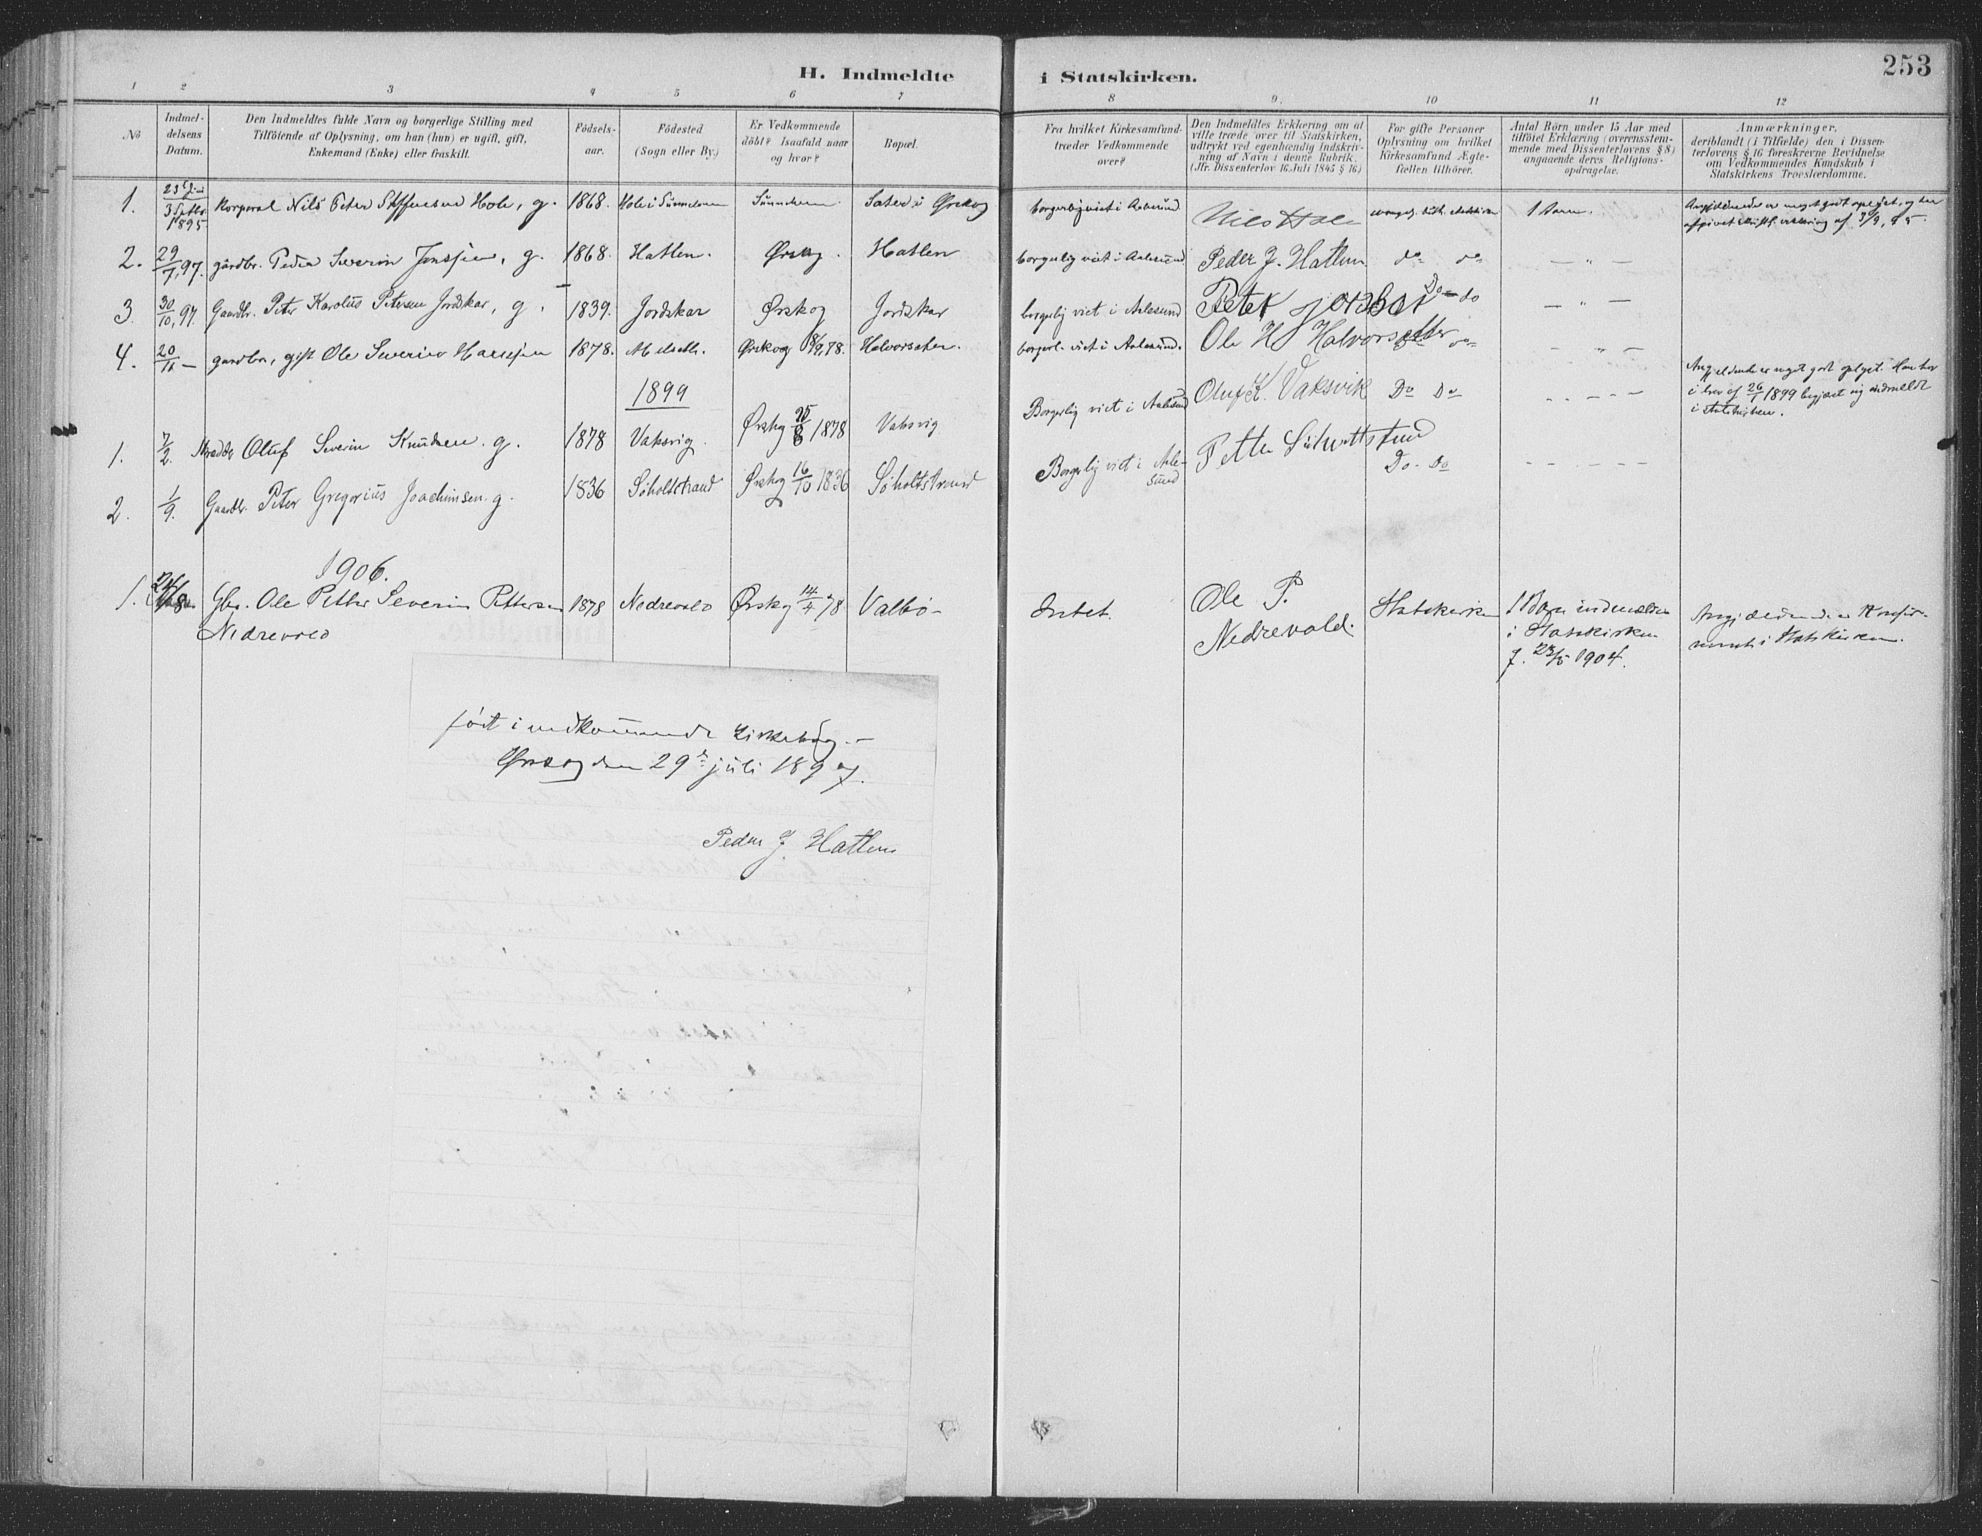 253
H. Indmeldte i Statskirken.
1 2 3 4 5 6 7 8 9. 10 11 12
No
Indmel-
delsens
Datum.
Den Indmeldtes fulde Navn og borgerlige Stilling med
Tilföiende af Oplysning, om han (hun) er ugift, gift,
Enkemand (Enke) eller fraskilt.
Födsels-
aar.
Födested
(Sogn eller By.)
Er Vedkommende
döbt? Isaafald naar
og hvor?
Bopæl.
Fra hvilket Kirkesamfund
træder Vedkommende
over?
Den Indmeldtes Erklæring om at
ville træde over til Statskirken,
udtrykt ved egenhændig Indskriv-
ning af Navn i denne Rubrik.
(Jfr. Dissenterlov 16 Juli 1845 § 16)
For gifte Personer
Oplysning om hvilket
Kirkesamfund Ægte-
fællen tilhörer.
Antal Börn under 15 Aar med
tilföiet Erklæring (overensstem-
mende med Dissenterlovens § 8)
angaaende deres Religions-
opdragelse.
Anmærkninger,
deriblandt (i Tilfælde) den i Dissen-
terlovens § 16 foreskrevne Bevidnelse
om Vedkommendes Kundskab i
Statskirkens Troeslærdomme.
1. 3 Septbr 1895 Korporal Nils Peter Steffensen Hole, g. 1868. Hole i Sunndem Sunndem Sæter i Ørskog borgerlig viet i Aalesund Nils Hole 1 barn.
2. 29/7, 97. gårdbr. Peder Severin Jenssen, g. 1868. Hatlen. Ørskog. Hatlen borgerlig viet i Aalesund Peder J. Hatlen do do — „ —
3. 30/10, 97. Gaardbr. Peter Karolus Petersen Jordskar, g. 1839. Jordskar Ørskog Jordskar borgerlig viet i Aalesund Peter Jordskar Do do — „ —
4. 20/11 — gårdbr, gift Ole Severin Hanssen 1878. Ørskog 8/9, 78. Halvorseter. borgerl. viet i Aalesund. Ole H Halvorsetter do — „ —
1899
1. 7/2. Oluf Severin Knudsen. g. 1878 Vaksvig. Ørskog 25/8 1878 Vaksvig Borgerlig viet i Aalesund Oluf K. Vaksvik Do Do - - - - -
i brev af 26/1 1899 begjæret sig indmeldt
i statskirken.
2. 1/9. Gaardbr. Peter Gregorius Joachimsen. g. 1836 Søholtstrand Ørskog 16/10 1836 Søholtstrand Borgerlig viet i Aale-
sund Petter Søholtstrand Do. Do - - - - - -
1906.
1. Gbr. Ole Petter Severin Pettersen 1878 Nedrevold Ørskog 14/4 78 Valbø- Intet. Ole P. Statskirken 1 Barn indmeldes
Nedrevold Nedrevold. i Statskirken
f. 23/5 1904.
Angjældende er Konfir-
meret i Statskirken.
ført i vedkommende kirkebog.-
Ørskog den 29de juli 1897.
Peder J Hatlen